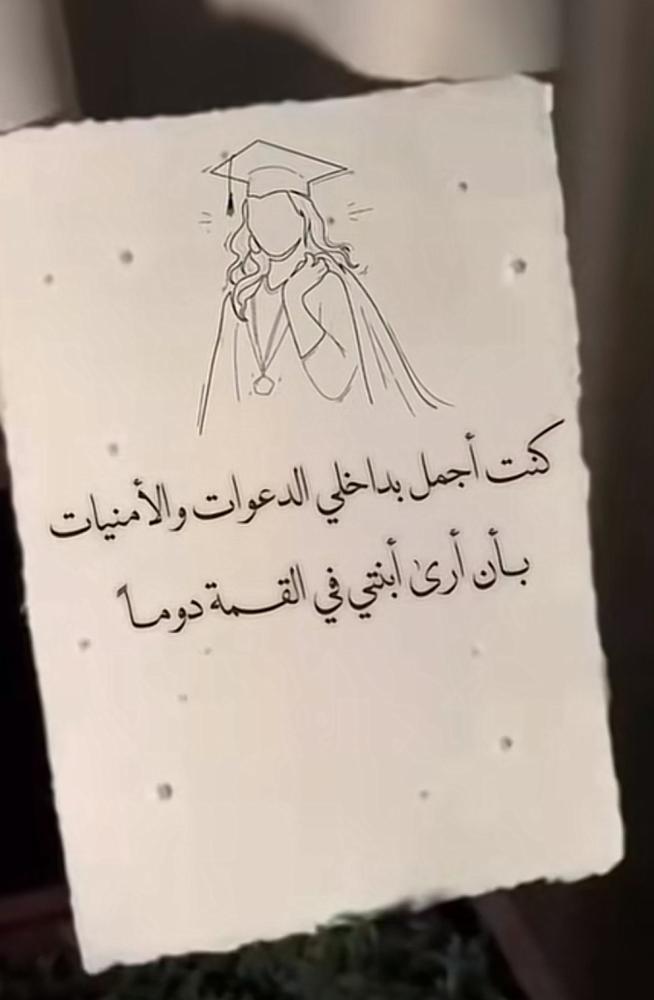 كنت أجمل بداخلي الدعوات والأمنيات
بأن أرىٰ أبنتي في القمة دوماً